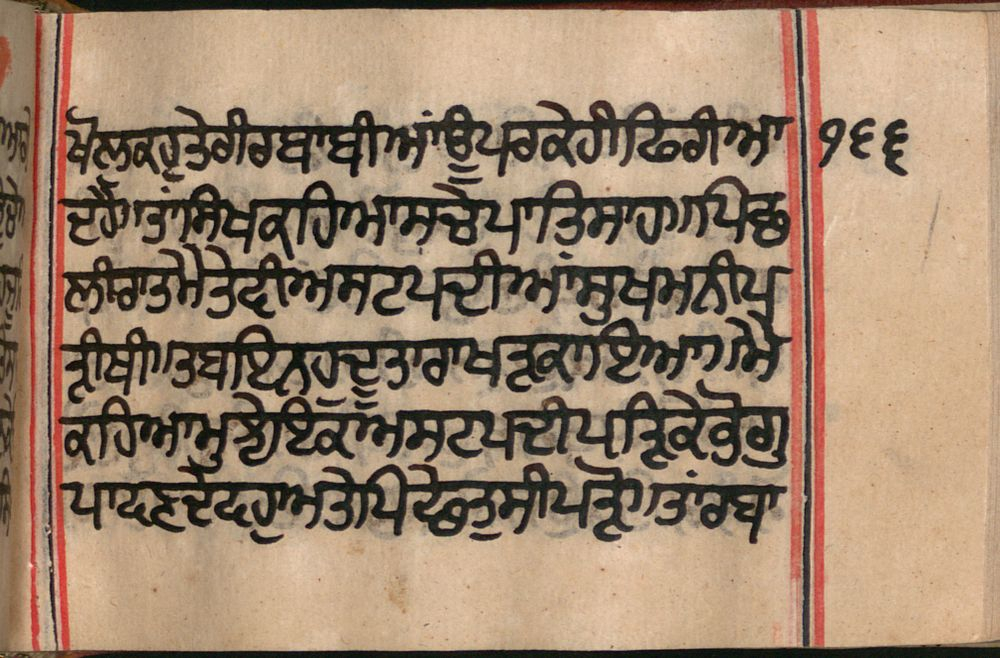 ਖੋਲ੍ਹਕਰੁਤੇਰੀਰਬਾਬੀਆਂਉਪਰਕੇਹੀਫਿਰੀਆ ੧੬੬
ਦਹੈ॥ਤਾਂਸਿਖਕਹਿਆਸਚੇਪਾਤਿਸਾਹ॥ਪਿਛ
ਲੀਰਾਤਮੈਤੇਦੀਅਸਟਪਦੀਆਂਸੁਖਮਨੀਪ
ੜੀਥੀ॥ਤਬਇਨਹੁਦੁਤਾਰਾਖੜਕਾਇਆ॥ਮੈ
ਕਹਿਆਮੁਇਕਅਸਟਪਦੀਪੜਿਕੇਕੋਗੁ
ਪਾਦਣਦੇਦਹੁਅਤੇਪਿਛੇਤੁਸੀਪੜੋ॥ਤਾਂਰਬਾ